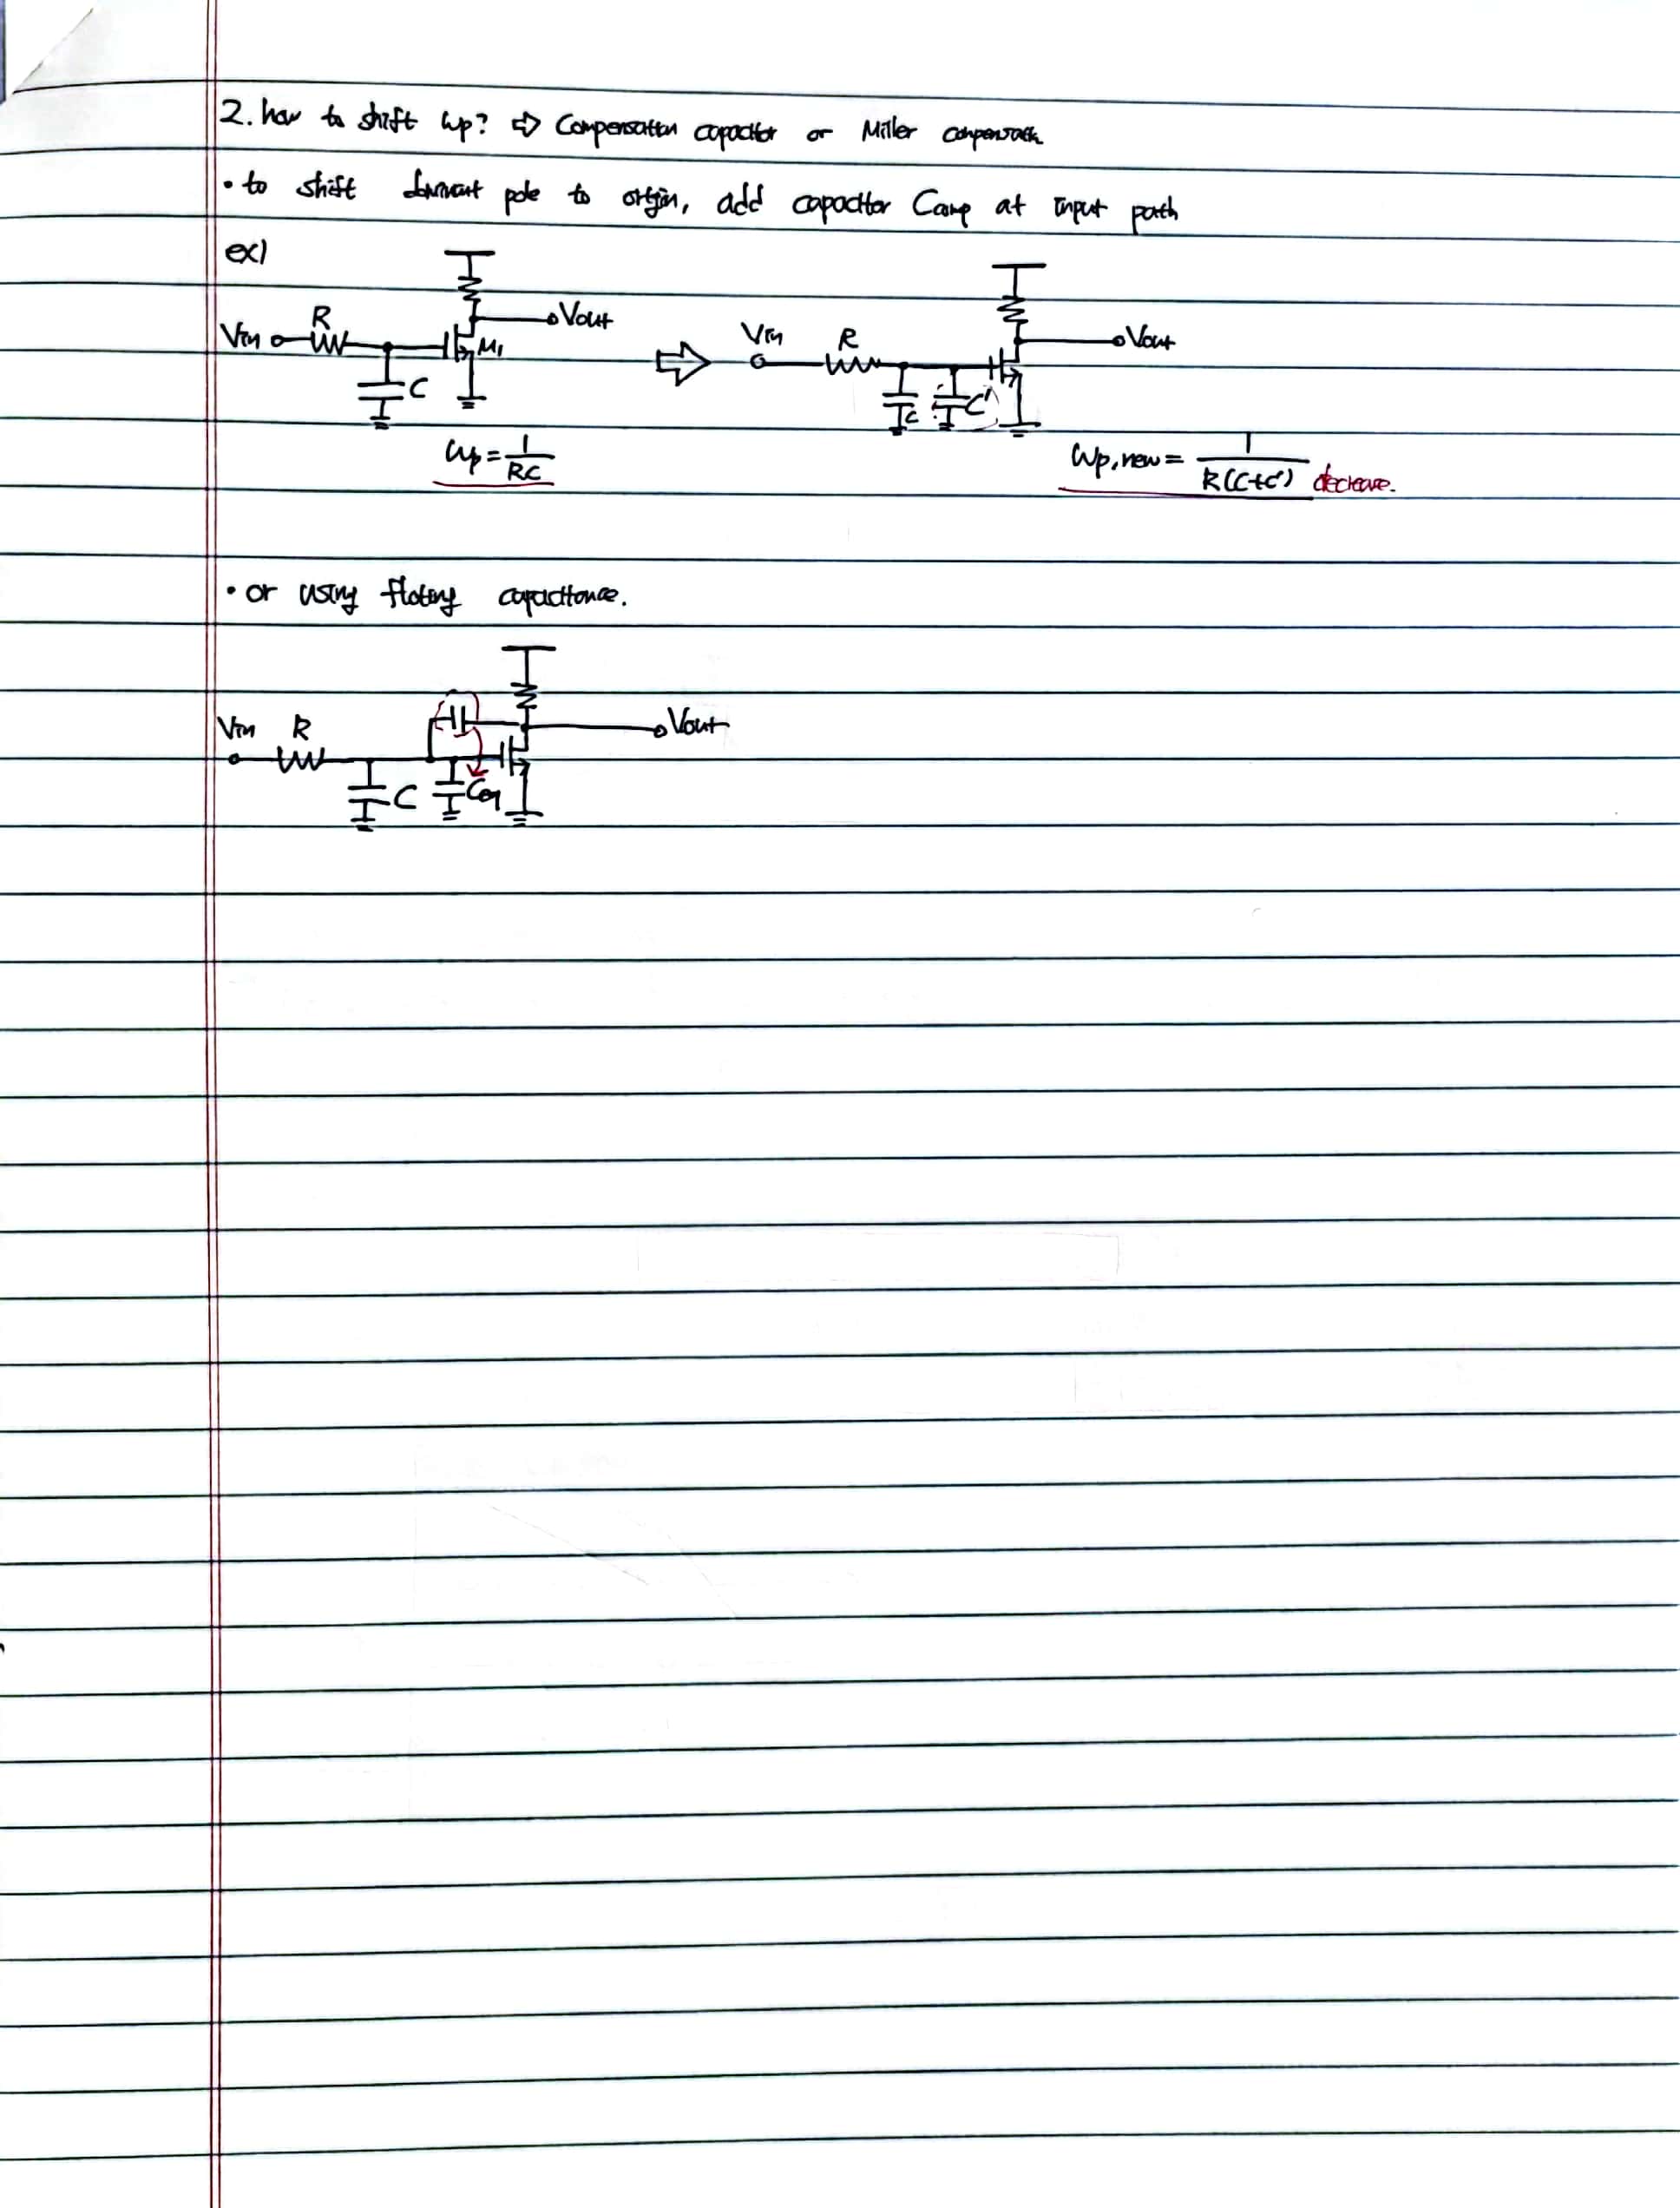 2. how to shift ωp? ⇨ Compensation capacitor or Miller compensation
• to shift dominant pole to origin, add capacitor Comp at input path
ex)
Vin R C M1 Vout
ωp = 1/RC
⇨
Vin R C C' Vout
ωp,new = 1/R(C+C') decrease.
• or using floting capacitance.
Vin R C Ceq Vout